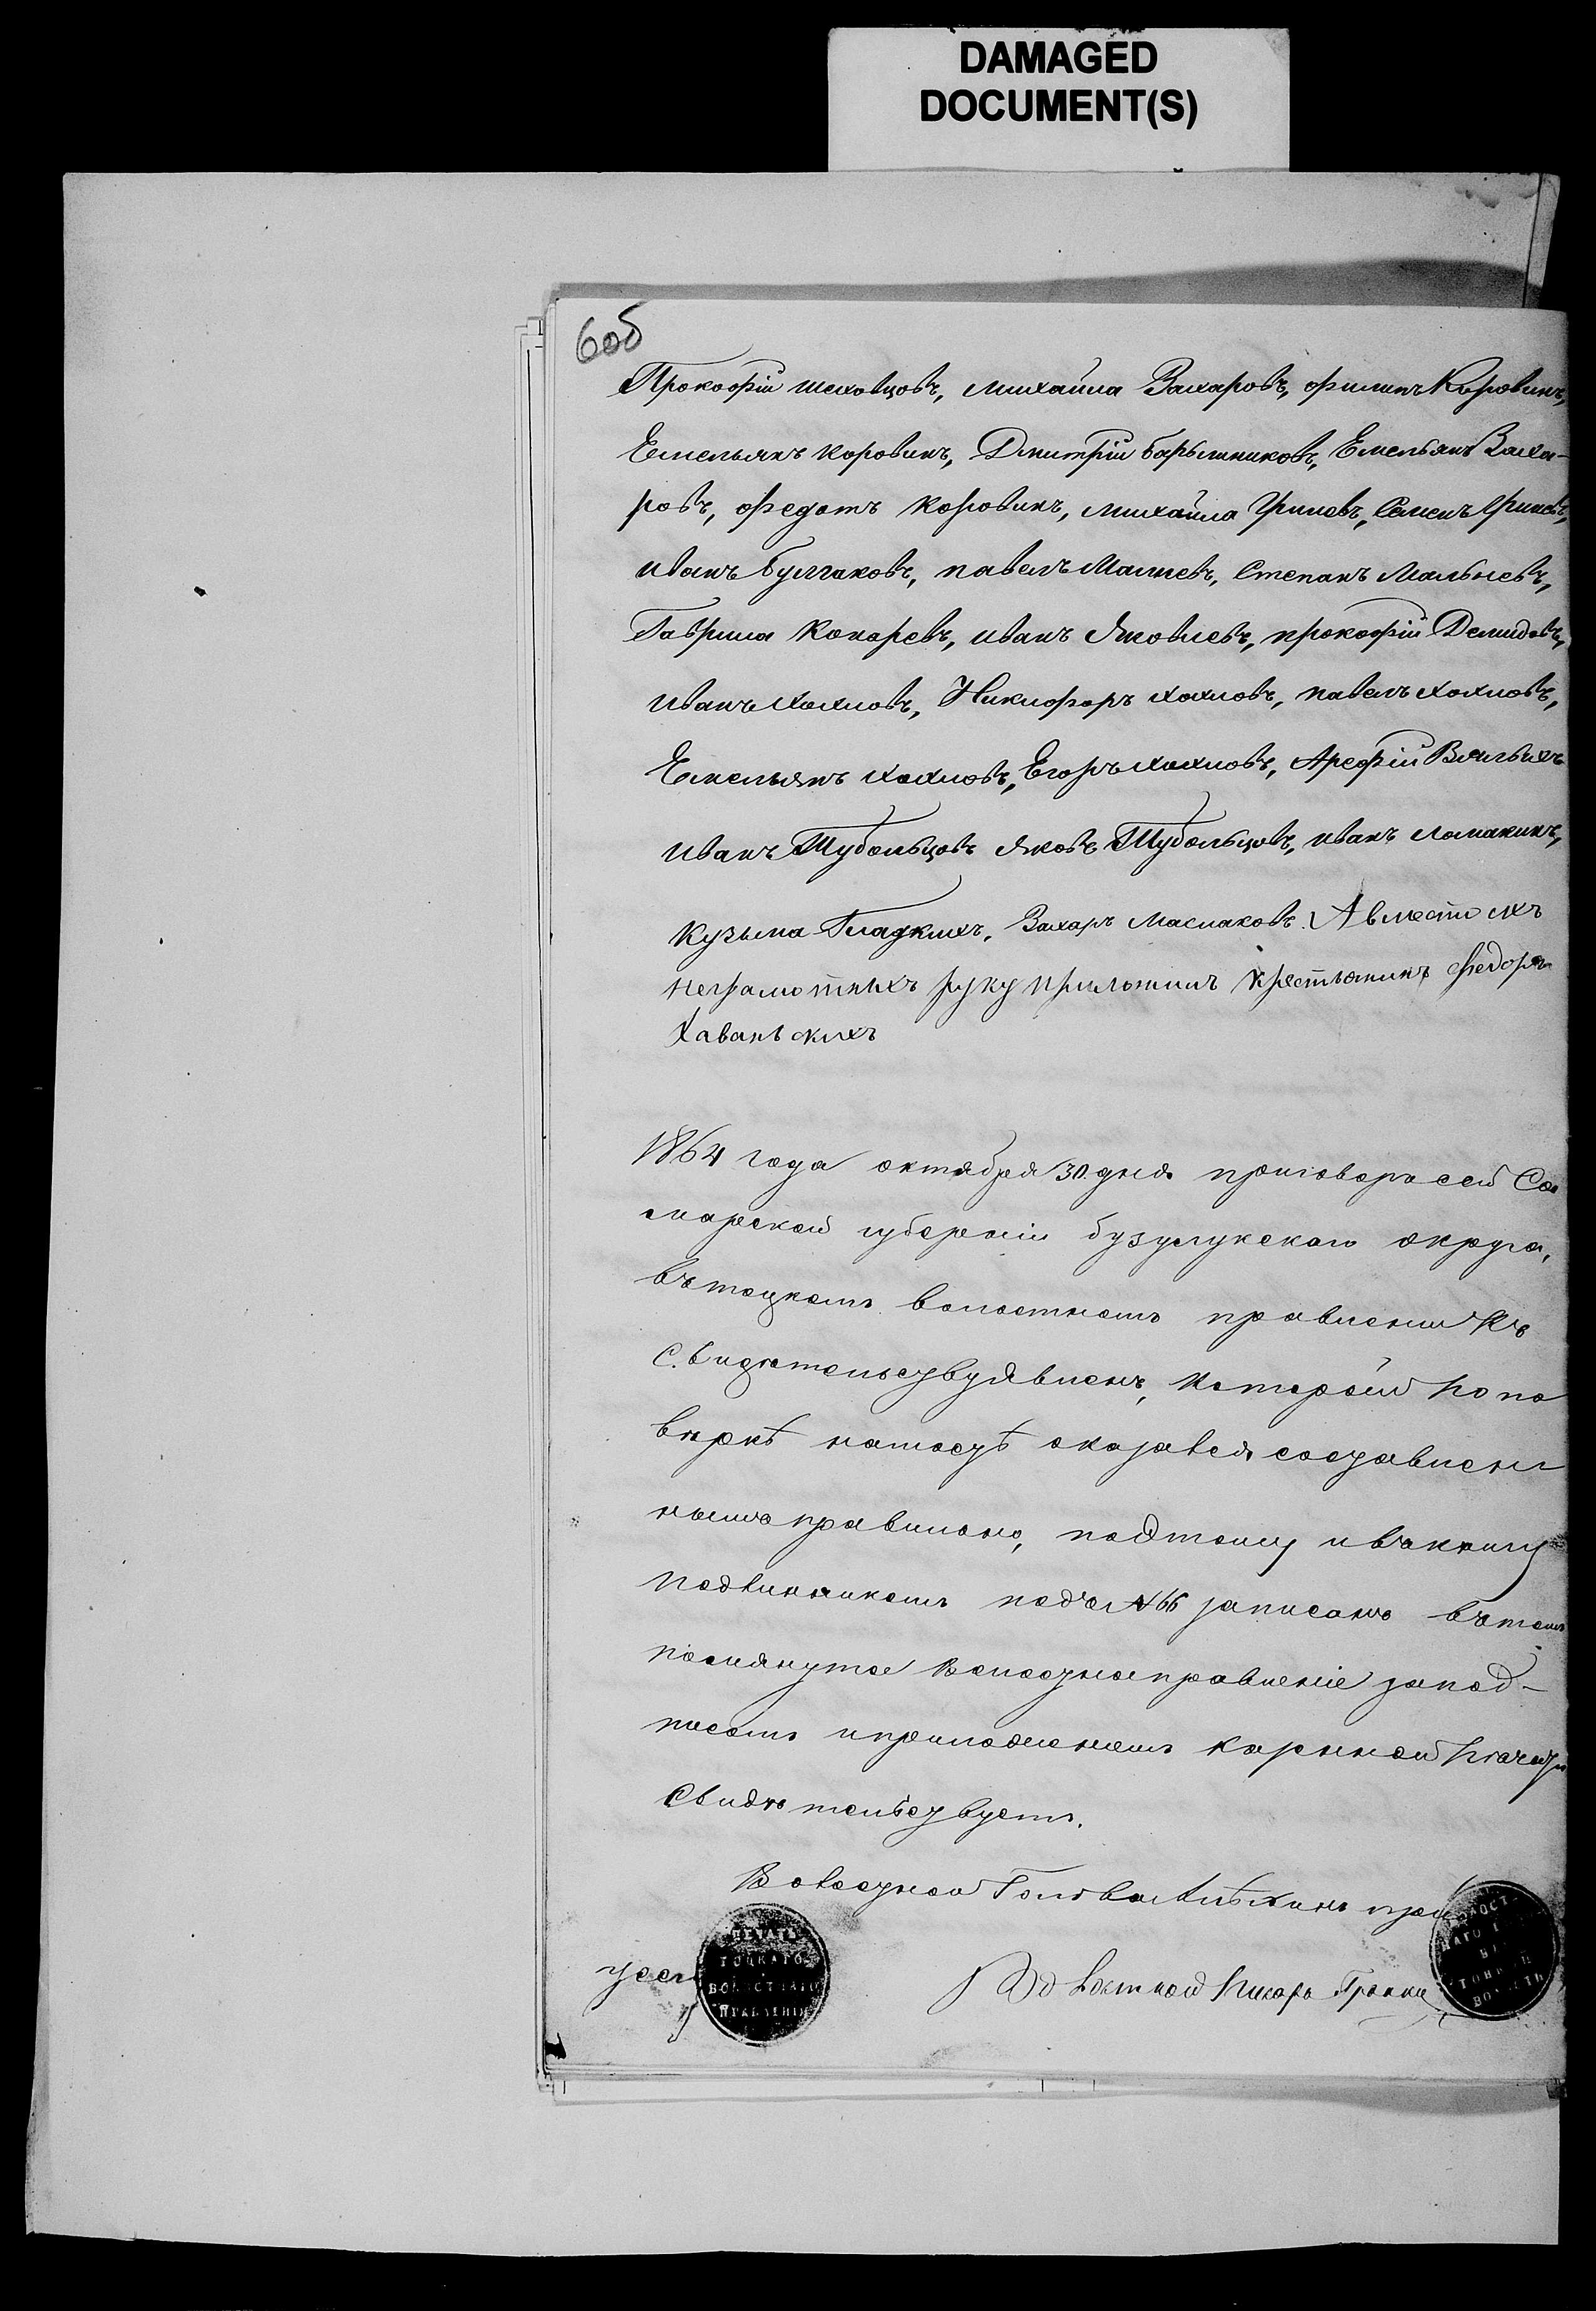 DAMAGED
DOCUMENT(S)
6об
Прокофiй шеховцовъ, михайла Захаровъ, филипъ Коровинъ,
Емельянъ коровинъ, Дмитрiй барышниковъ, Емельянъ Заха-
ровъ, федотъ коровинъ, михайла Гриневъ, Семенъ Гриневъ,
иванъ булгаковъ, павелъ Малневъ, Степанъ Мальневъ,
Гаврила Конаревъ, иванъ Яковлевъ, прокофiй Демидовъ,
иванъ хохловъ, Никифоръ хохловъ, павелъ хохловъ,
Емельянъ хохловъ, Егоръ хохловъ, Арефiй
иванъ Шубольцовъ яковъ Шубольцовъ, иванъ ломакинъ,
кузьма Гладкихъ, Захаръ Маслаковъ. А вместо ихъ
неграмотныхъ руку приложилъ крестьянинъ федоръ
Хаванскихъ
1864 года октября 30 дня приговоръ сей Са
марской губернiи бузулукскаго округа,
въ тоцкомъ волостномъ правлении къ
Свидетельству явленъ, который по по
веркѣ на местѣ оказался составлен
нымъ правильно, поэтому и въ книгу
подъ № 66 записанъ въ томъ
помянутое волосное правленiе за под-
писомъ и приложенiемъ казенной печати
свидѣтельствуетъ.
Волосной Голова
ПЕЧАТЬ
ТОЦКАГО
ВОЛОСТНАГО
ПРАВЛЕНIЯ
Волостной Писарь